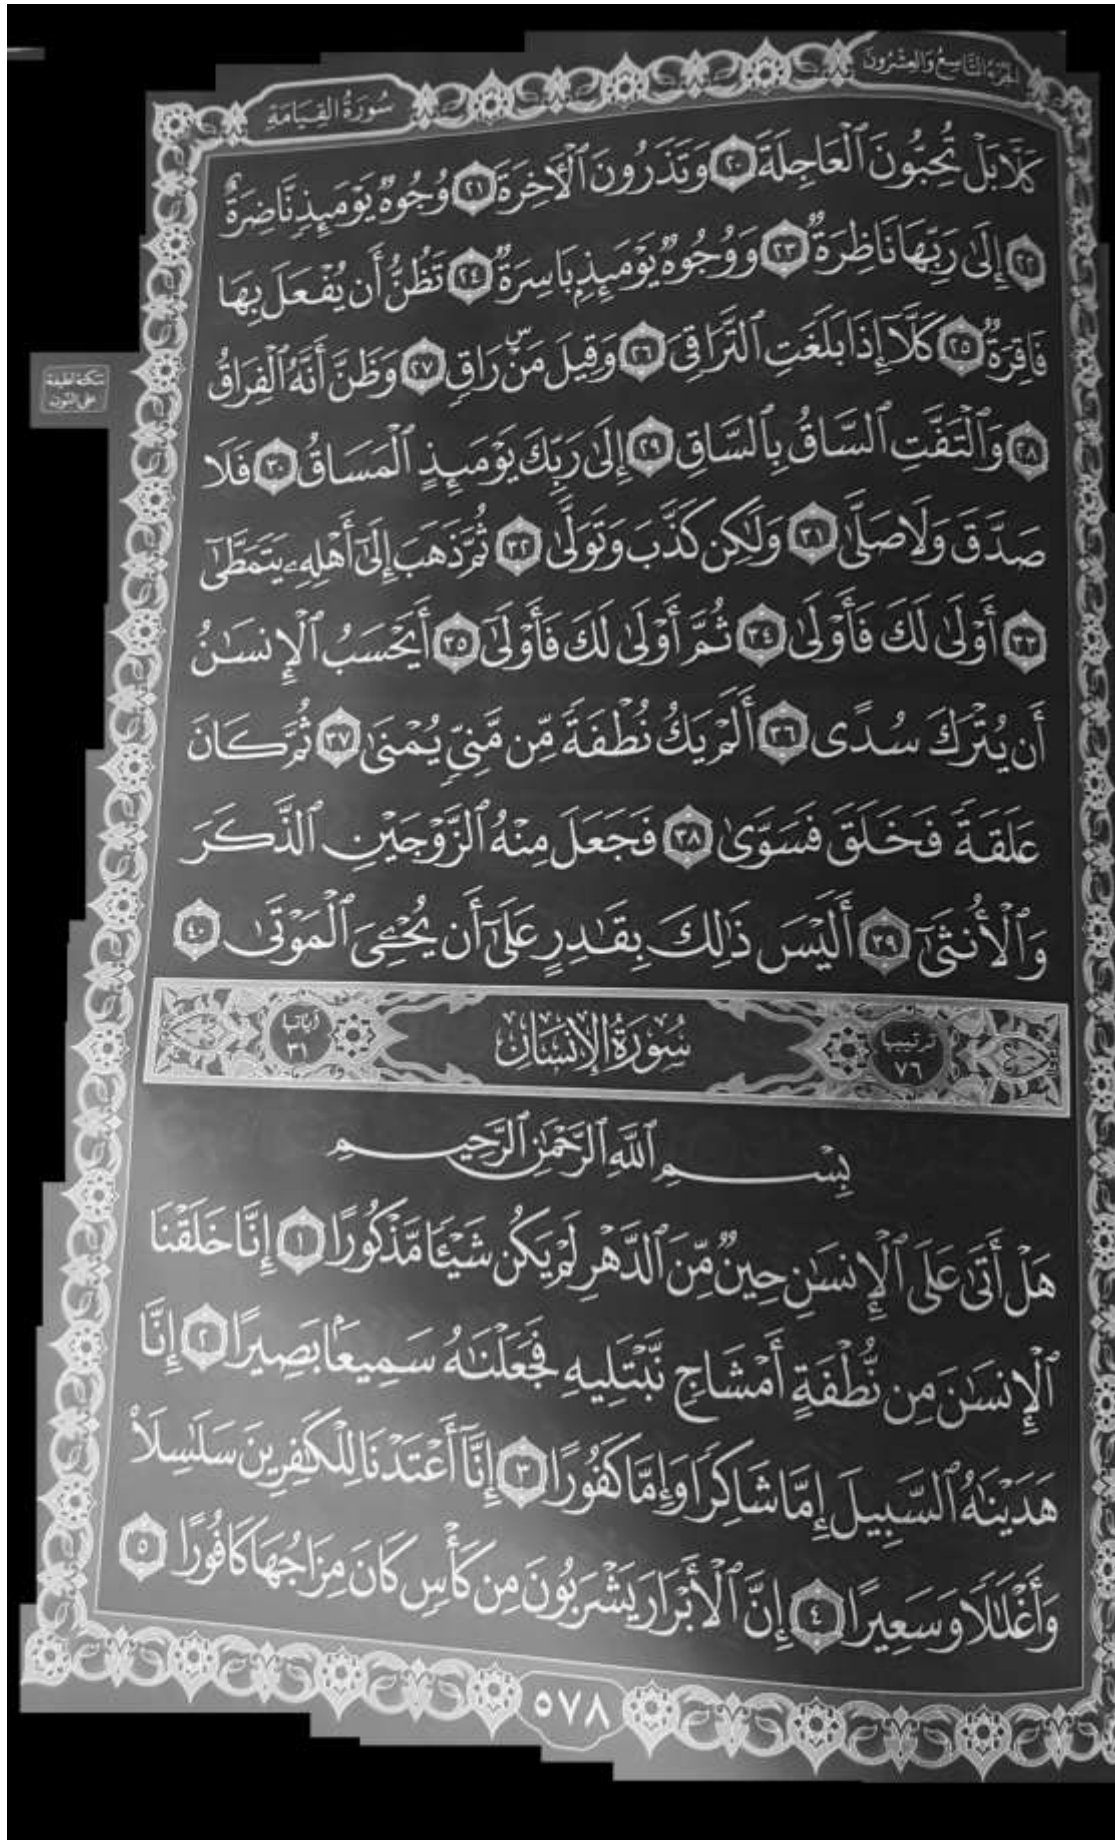 الجزء التاسع والعشرون
سورة القيامة
كَلَّا بَلْ تُحِبُّونَ ٱلْعَاجِلَةَ ٢٠ وَتَذَرُونَ ٱلْأٓخِرَةَ ٢١ وُجُوهٌ يَوْمَئِذٍ نَّاضِرَةٌ
٢٢ إِلَىٰ رَبِّهَا نَاظِرَةٌ ٢٣ وَوُجُوهٌ يَوْمَئِذِۭ بَاسِرَةٌ ٢٤ تَظُنُّ أَن يُفْعَلَ بِهَا
فَاقِرَةٌ ٢٥ كَلَّآ إِذَا بَلَغَتِ ٱلتَّرَاقِىَ ٢٦ وَقِيلَ مَنْۜ رَاقٍ ٢٧ وَظَنَّ أَنَّهُ ٱلْفِرَاقُ
سكتة لطيفة
على النون
٢٨ وَٱلْتَفَّتِ ٱلسَّاقُ بِٱلسَّاقِ ٢٩ إِلَىٰ رَبِّكَ يَوْمَئِذٍ ٱلْمَسَاقُ ٣٠ فَلَا
صَدَّقَ وَلَا صَلَّىٰ ٣١ وَلَٰكِن كَذَّبَ وَتَوَلَّىٰ ٣٢ ثُمَّ ذَهَبَ إِلَىٰٓ أَهْلِهِۦ يَتَمَطَّىٰٓ
٣٣ أَوْلَىٰ لَكَ فَأَوْلَىٰ ٣٤ ثُمَّ أَوْلَىٰ لَكَ فَأَوْلَىٰٓ ٣٥ أَيَحْسَبُ ٱلْإِنسَٰنُ
أَن يُتْرَكَ سُدًى ٣٦ أَلَمْ يَكُ نُطْفَةً مِّن مَّنِىٍّ يُمْنَىٰ ٣٧ ثُمَّ كَانَ
عَلَقَةً فَخَلَقَ فَسَوَّىٰ ٣٨ فَجَعَلَ مِنْهُ ٱلزَّوْجَيْنِ ٱلذَّكَرَ
وَٱلْأُنثَىٰٓ ٣٩ أَلَيْسَ ذَٰلِكَ بِقَٰدِرٍ عَلَىٰٓ أَن يُحْۦِىَ ٱلْمَوْتَىٰ ٤٠
ترتيبها ٧٦ سُورَةُ الإِنسَانِ آياتها ٣١
بِسْمِ ٱللَّهِ ٱلرَّحْمَٰنِ ٱلرَّحِيمِ
هَلْ أَتَىٰ عَلَى ٱلْإِنسَٰنِ حِينٌ مِّنَ ٱلدَّهْرِ لَمْ يَكُن شَيْـًٔا مَّذْكُورًا ١ إِنَّا خَلَقْنَا
ٱلْإِنسَٰنَ مِن نُّطْفَةٍ أَمْشَاجٍ نَّبْتَلِيهِ فَجَعَلْنَٰهُ سَمِيعًۢا بَصِيرًا ٢ إِنَّا
هَدَيْنَٰهُ ٱلسَّبِيلَ إِمَّا شَاكِرًا وَإِمَّا كَفُورًا ٣ إِنَّآ أَعْتَدْنَا لِلْكَٰفِرِينَ سَلَٰسِلَا۟
وَأَغْلَٰلًا وَسَعِيرًا ٤ إِنَّ ٱلْأَبْرَارَ يَشْرَبُونَ مِن كَأْسٍ كَانَ مِزَاجُهَا كَافُورًا ٥
٥٧٨